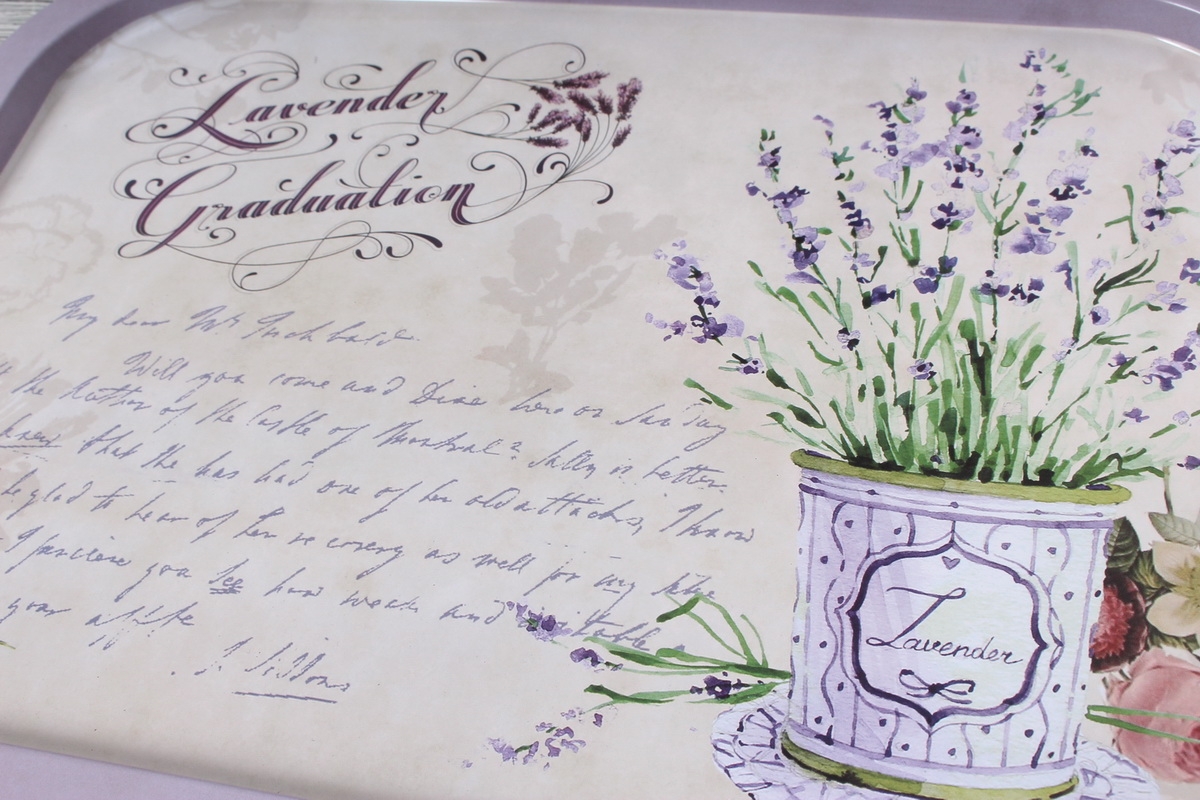 Lavender
Graduation
My dear Mrs Inchbald
Will you come and Dine here on Sunday
the Author of the Castle of Montval? Sally is better.
knew that she has had one of her old attacks, I know
be glad to hear of her recovery as well for my sake
you see how weak and
your affte
S Siddons
Lavender